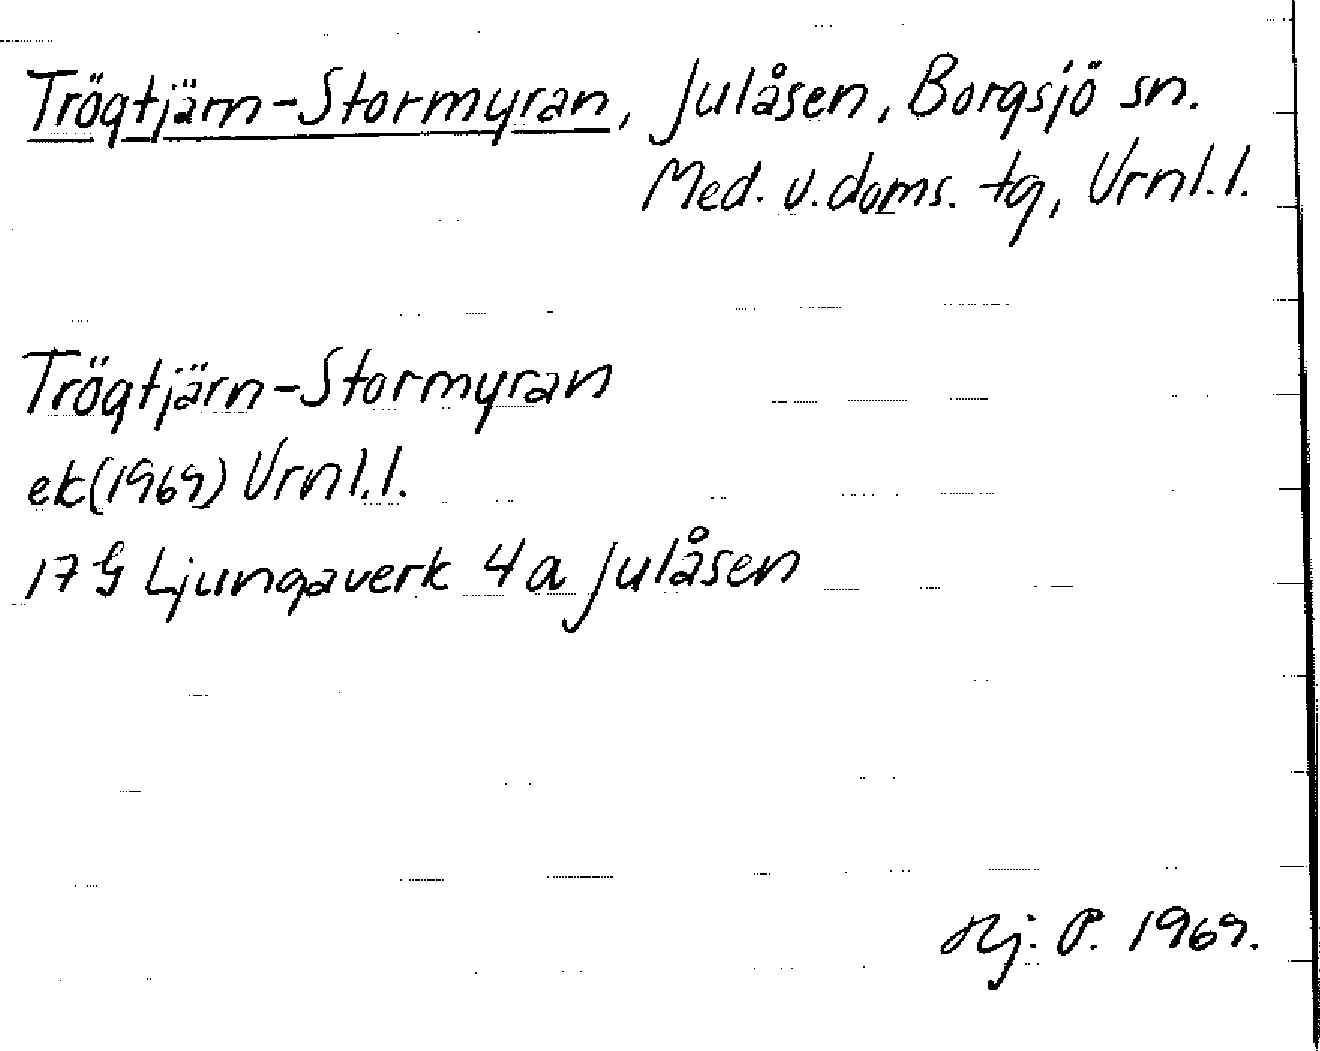 Trögtjärn-Stormyran, Julåsen, Borgsjö sn.
Med. v. doms. tg, Vrnl.l.
Trögtjärn-Stormyran
ek(1969) Vrnl.l.
17 G Ljungaverk 4 a Julåsen
Hj. P. 1969.